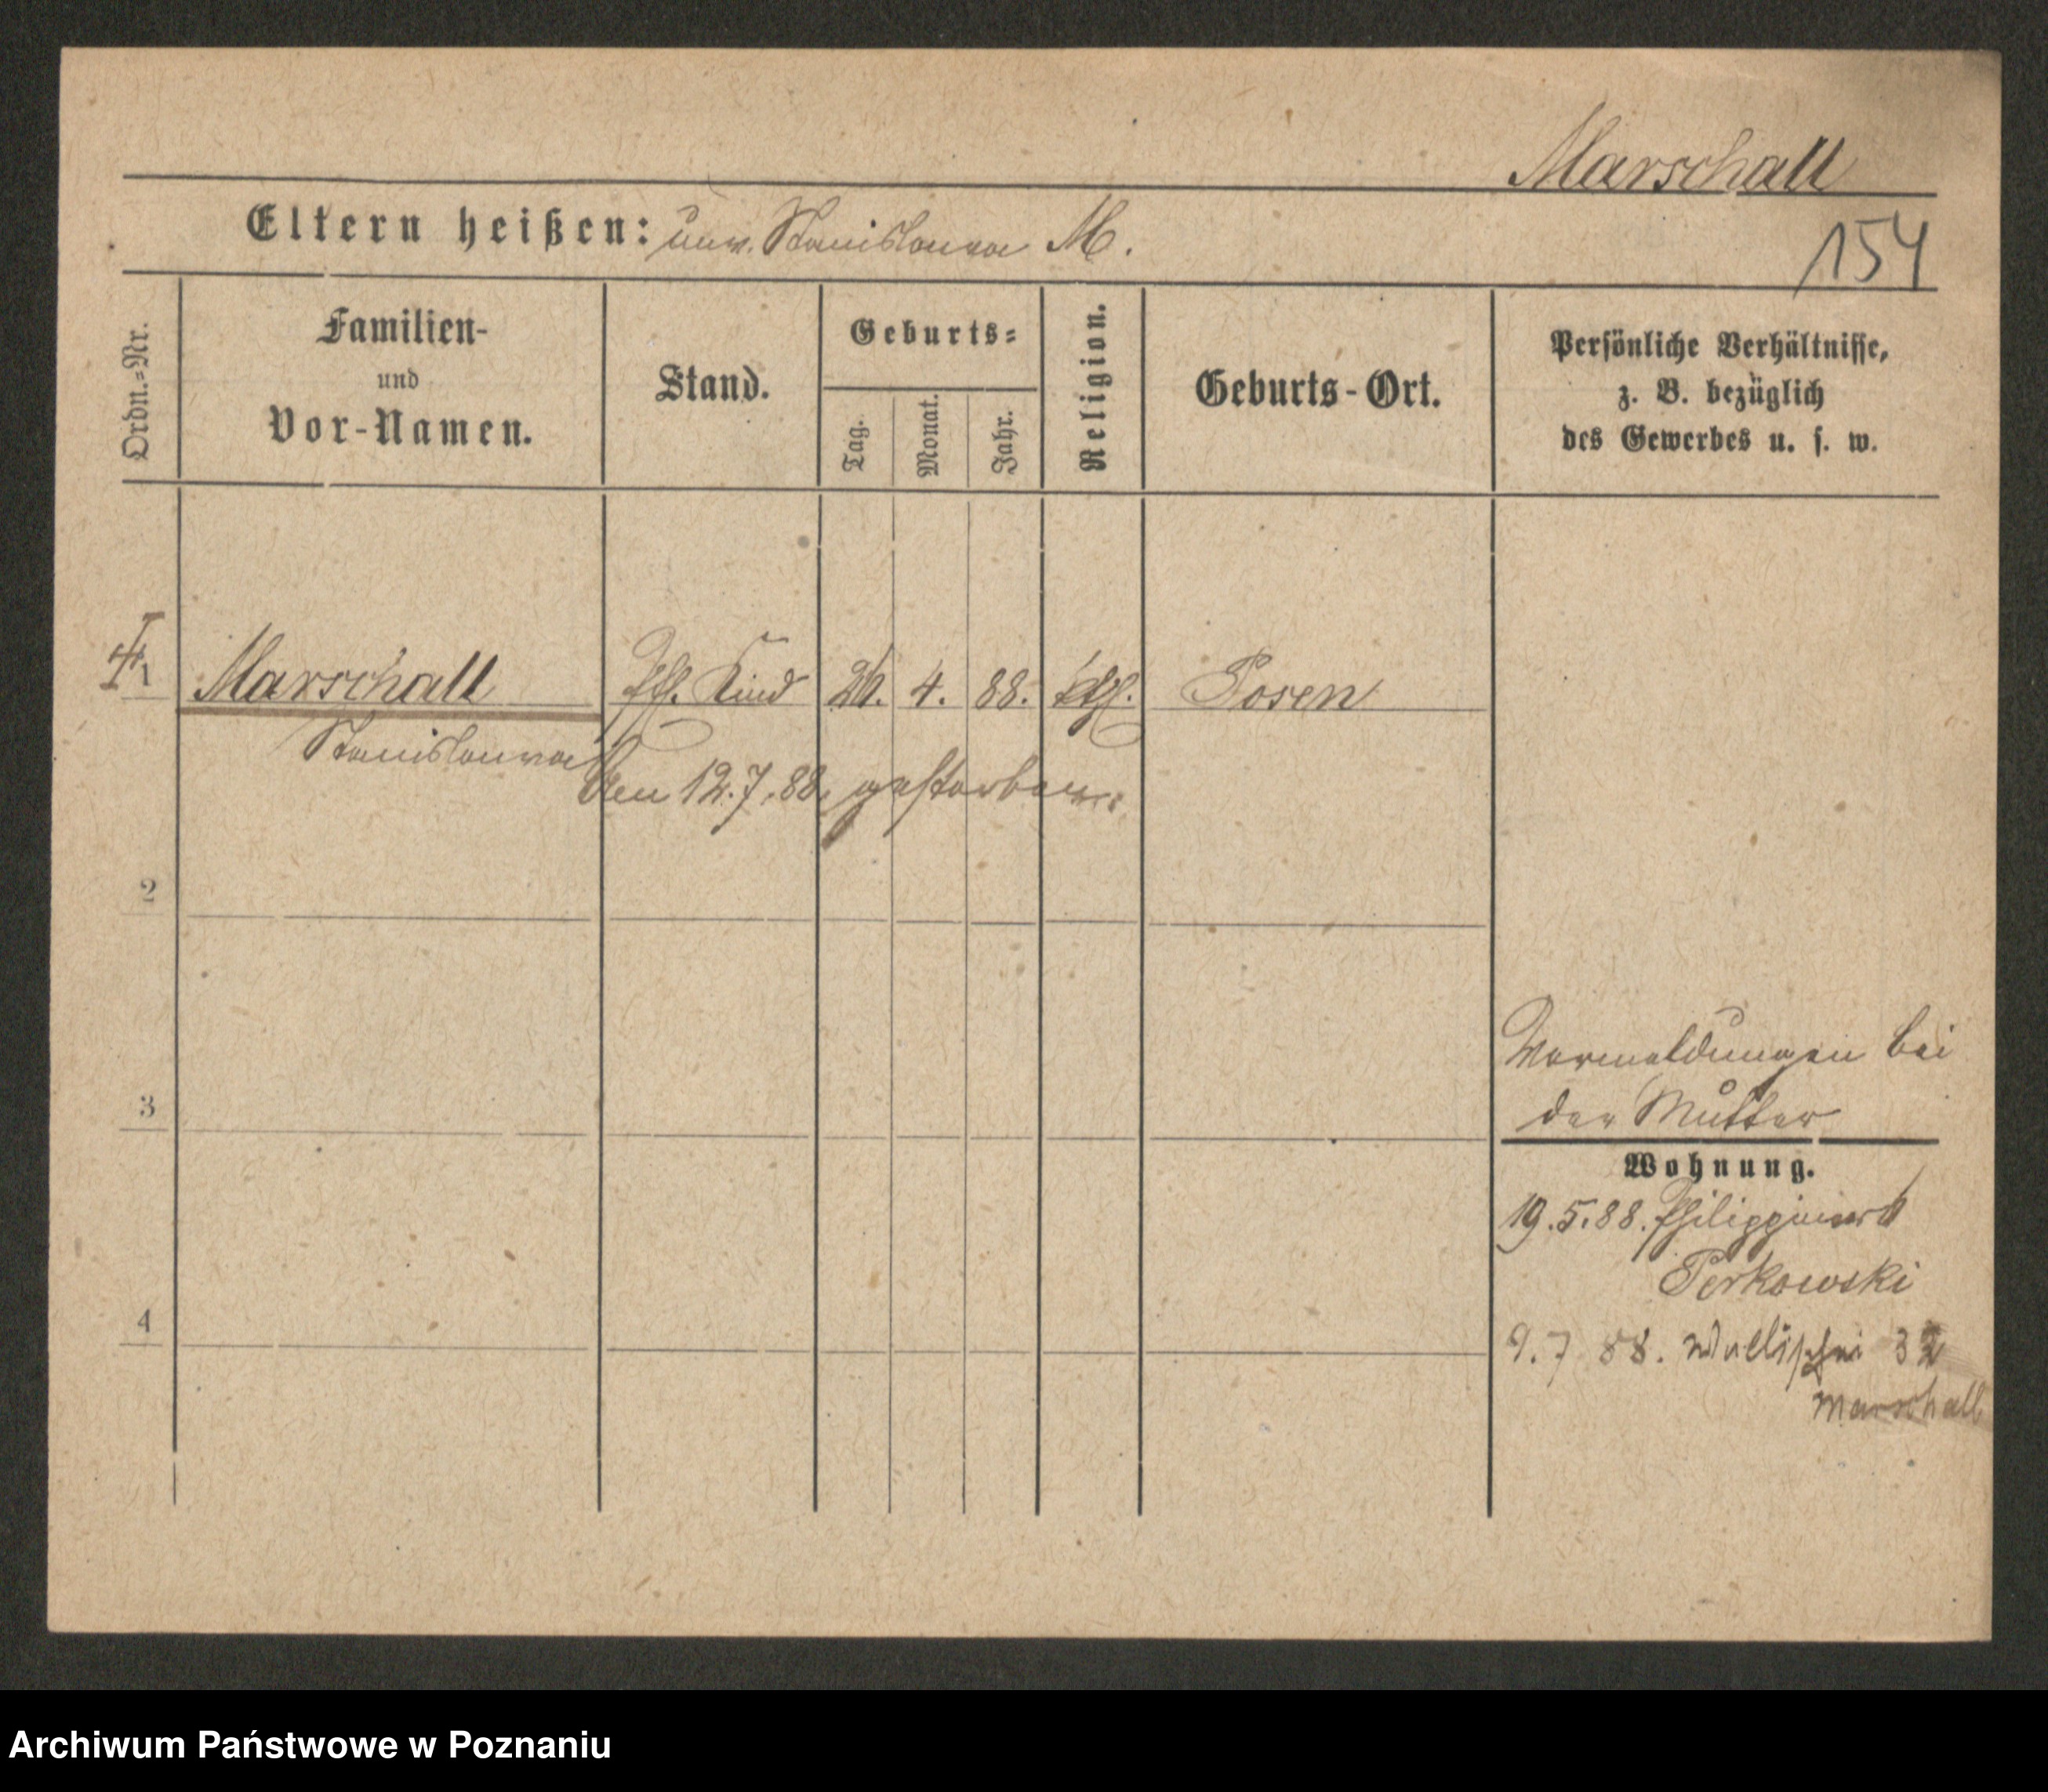 Marschall
Eltern heißen: unv. Stanislawa M.
154
Ordn.=Nr.
Familien-
und
Vor-Namen.
Stand.
Geburts=
Tag.
Monat.
Jahr.
Religion.
Geburts-Ort.
Persönliche Verhältnisse,
z. B. bezüglich
des Gewerbes u. s. w.
1 Marschall Kind 26. 4. 88. kth. Posen
Stanislawa
den 12.7.88. gestorben.
2
3
4
Vormeldungen bei
der Mutter
Wohnung.
19.5.88.
Perkowski
9.7 88. Wallischei 32
Marschall
Archiwum Państwowe w Poznaniu